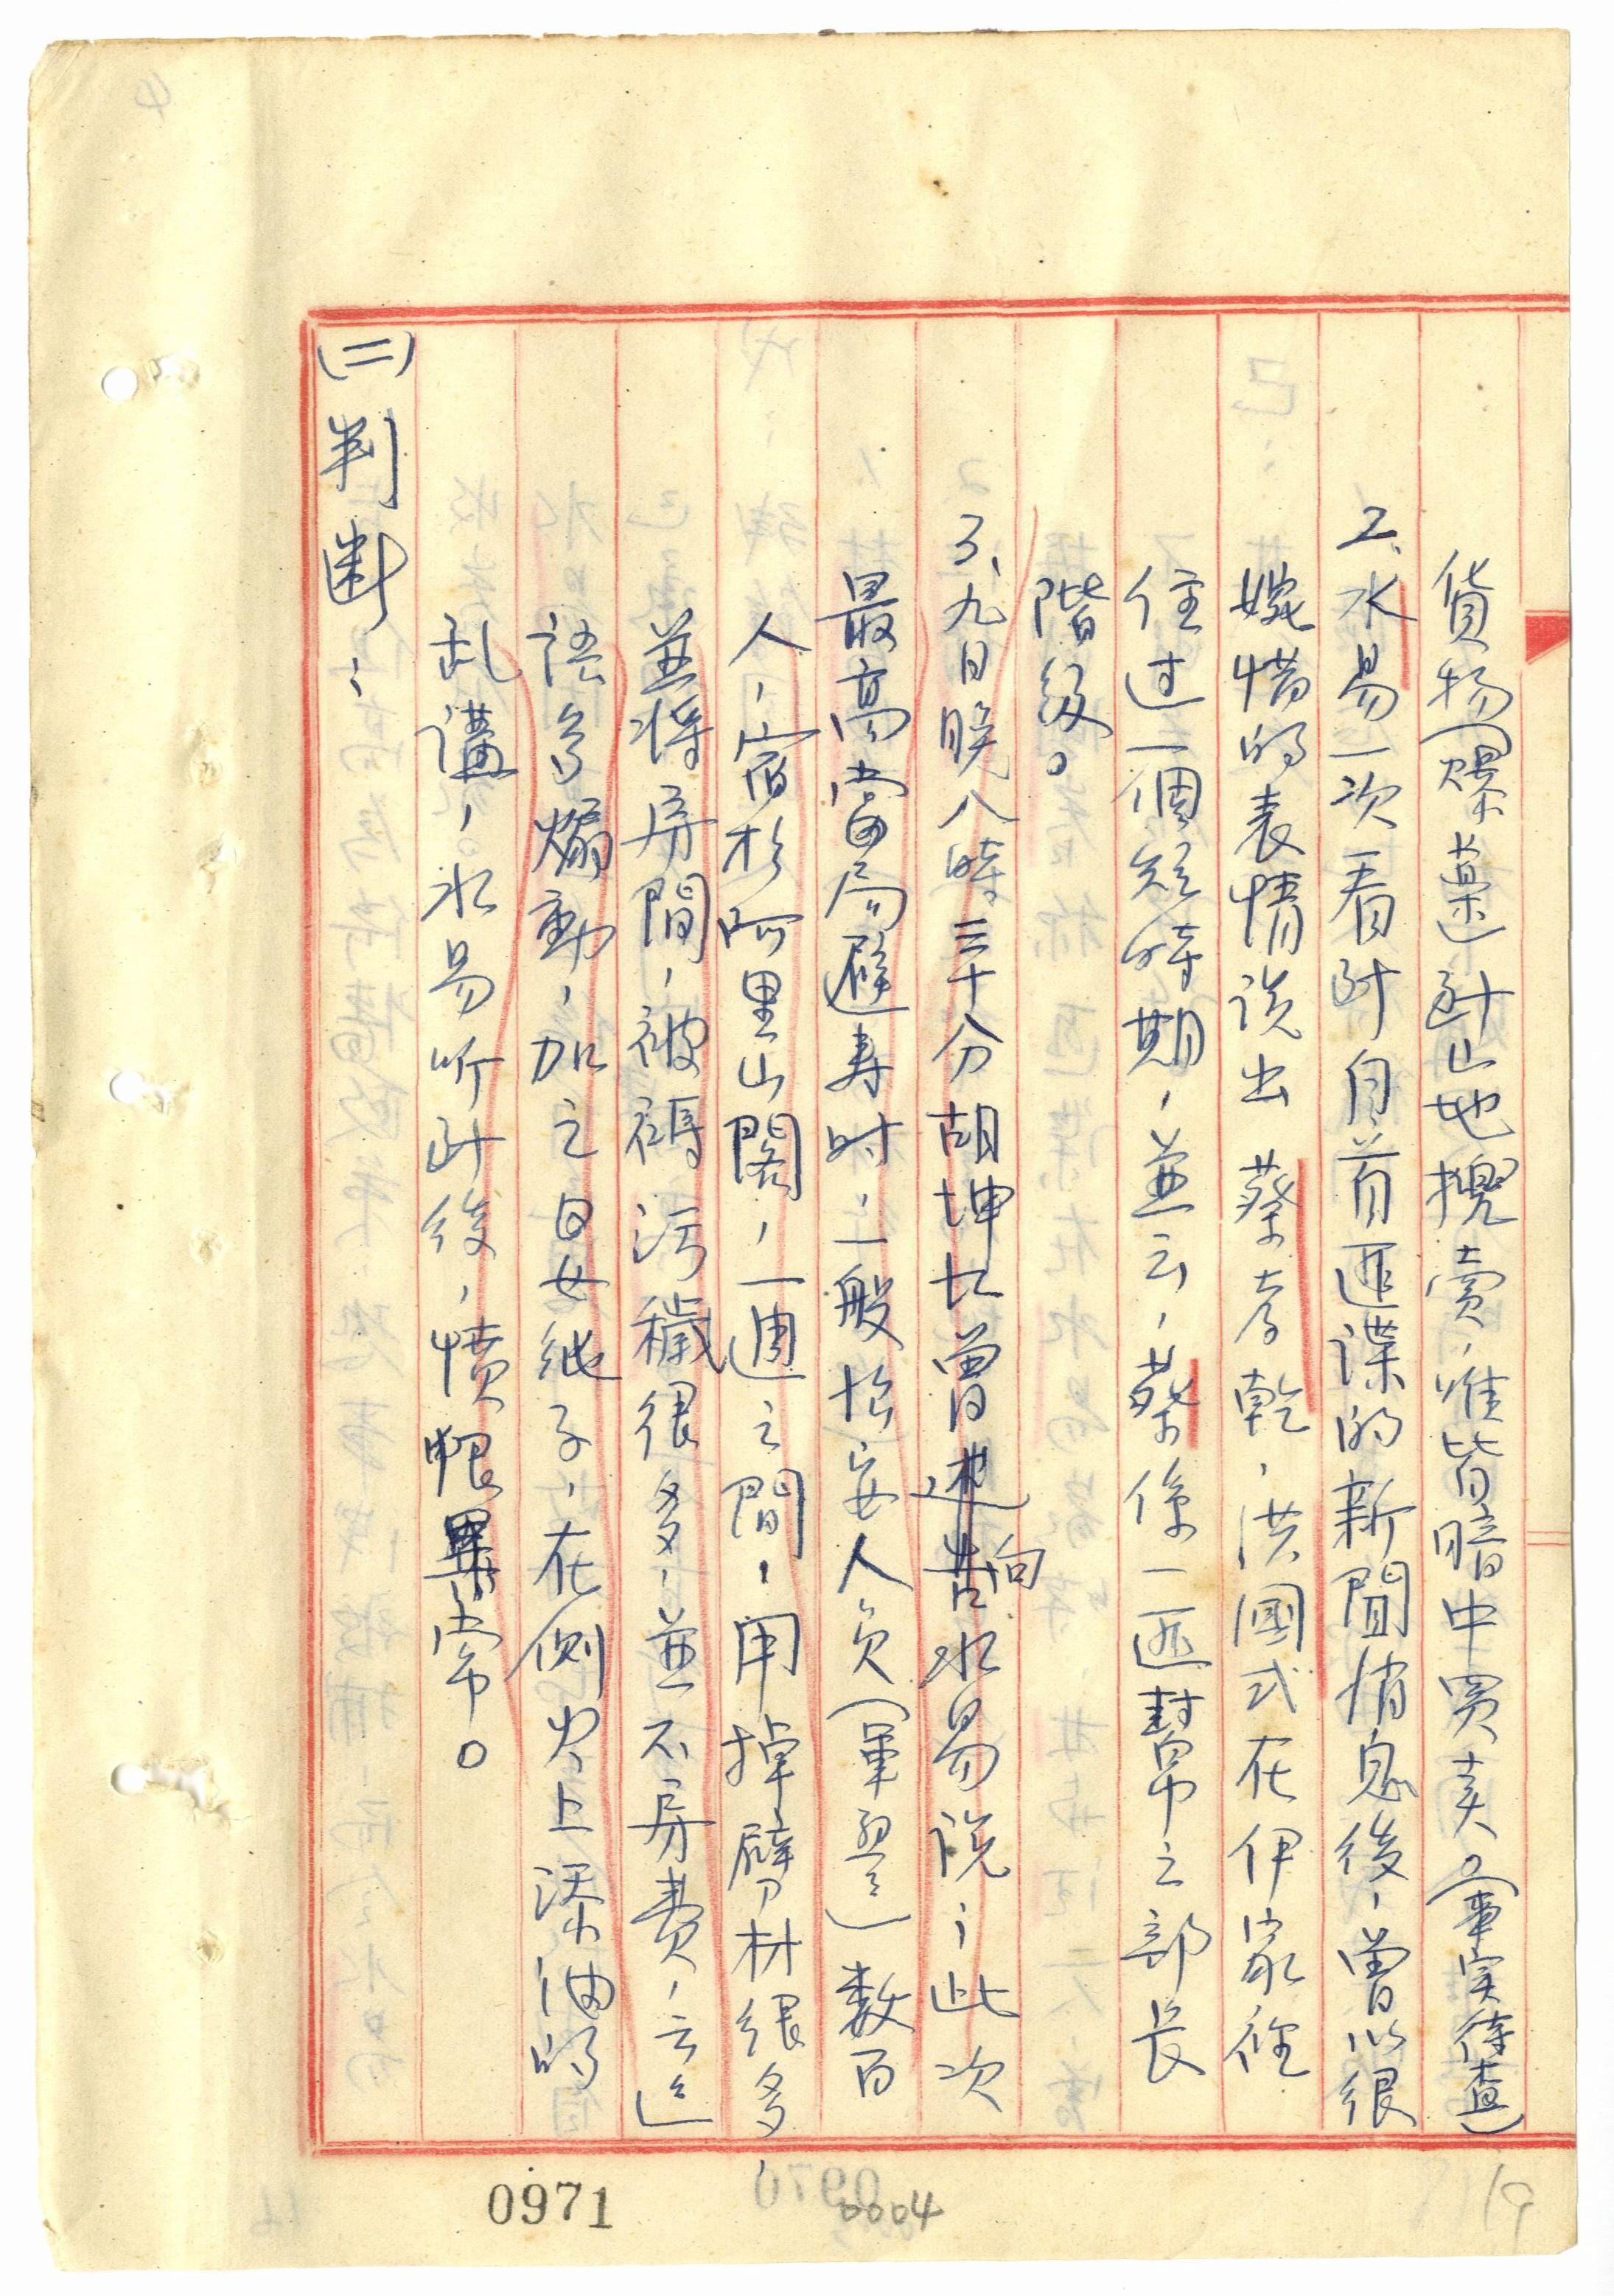 貨物(爆藥)到山地換賣,惟皆暗中買卖。(事实待查)
2、水易一次看到自首匪諜的新聞消息後,曾以很
婉惜的表情說出蔡孝乾、洪國式在伊家裡
住过一個短時期,並云,蔡係一匪幫中之部長
階級。
3、九日晚八時三十分胡坤七曾向水易説:此次
最高当局避寿时,一般治安人員(軍警)数百
人,宿於阿里山閣,一週之間,用掉劈材很多,
並将房間,被褥污穢很多,並不房費,云云
語多煽動,加之日女继子,在側火上添油的
乱講,水易听到後,憤恨異常。
(二)判断:
0971
0004
19